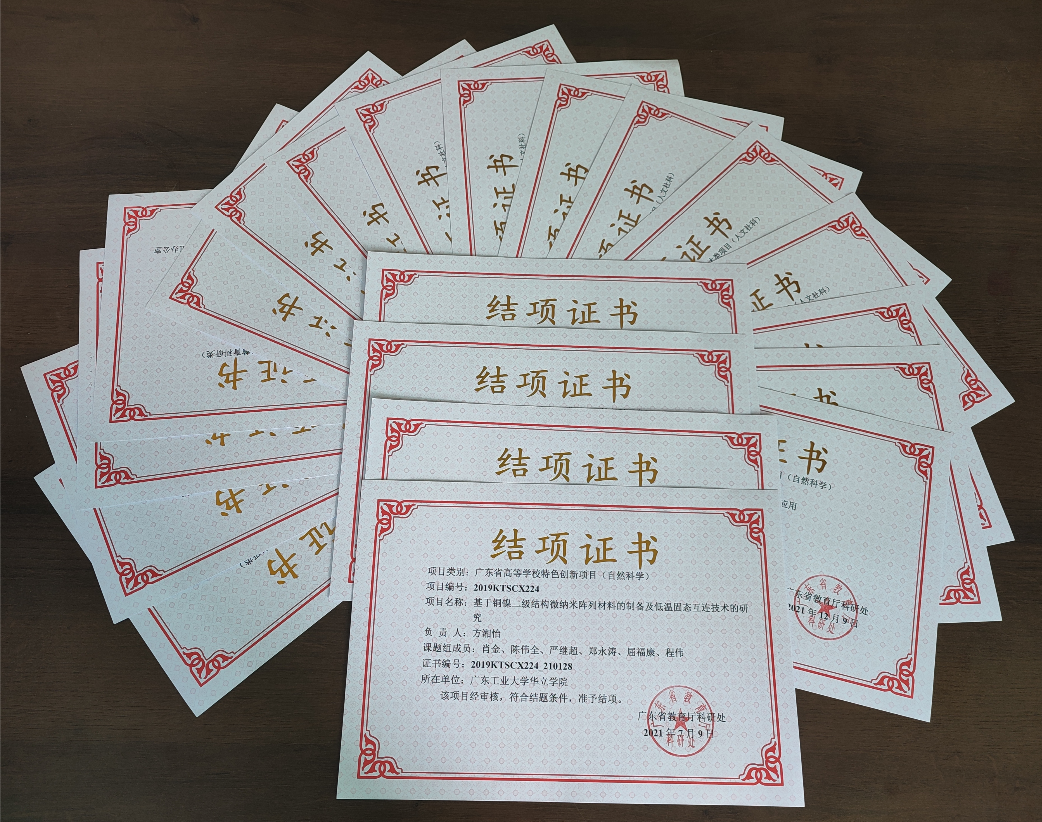 结项证书
结项证书
结项证书
结项证书
项目类别：广东省高等学校特色创新项目（自然科学）
项目编号：2019KTSCX224
项目名称：基于铜镍二级结构微纳米阵列材料的制备及低温固态互连技术的研
究
负 责 人：方湘怡
课题组成员：肖金、陈伟全、严继超、郑永涛、屈福康、程伟
证书编号：2019KTSCX224_210128
所在单位：广东工业大学华立学院
该项目经审核，符合结题条件，准予结项。
广东省教育厅科研处
2021 年 7 月 9 日
证书
（自然科学）
应用
广东省教育厅科研处
2021 年 12 月 9 日
证书
（人文社科）
证书
项目（人文社科）
项证书
（人文社科）
项证书
项证书
（人文社科）
证书
证书
证书
证书
证书
教育科研类）
证书
证书
证书